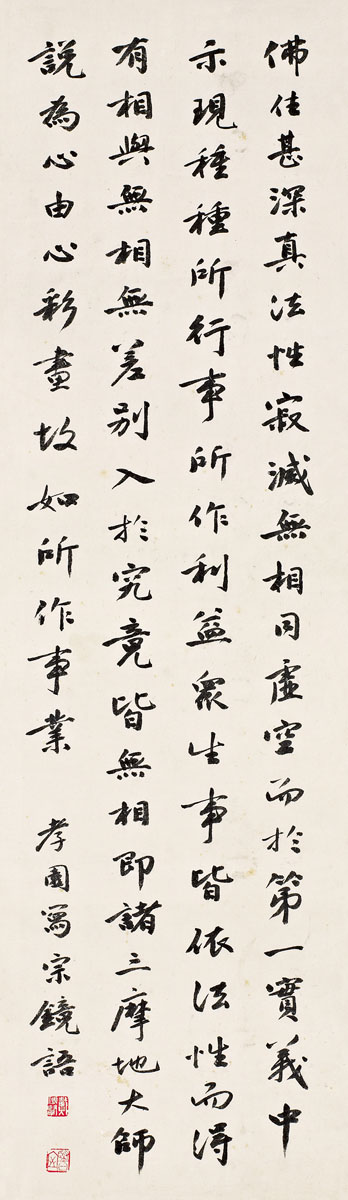 佛住甚深真法性寂滅無相同虛空而於第一實義中
示現種種所行事所作利益眾生事皆依法性而得
有相與無相無差別入於究竟皆無相即諸三摩地大師
說為心由心彩畫故如所作事業
孝園寫宗鏡語